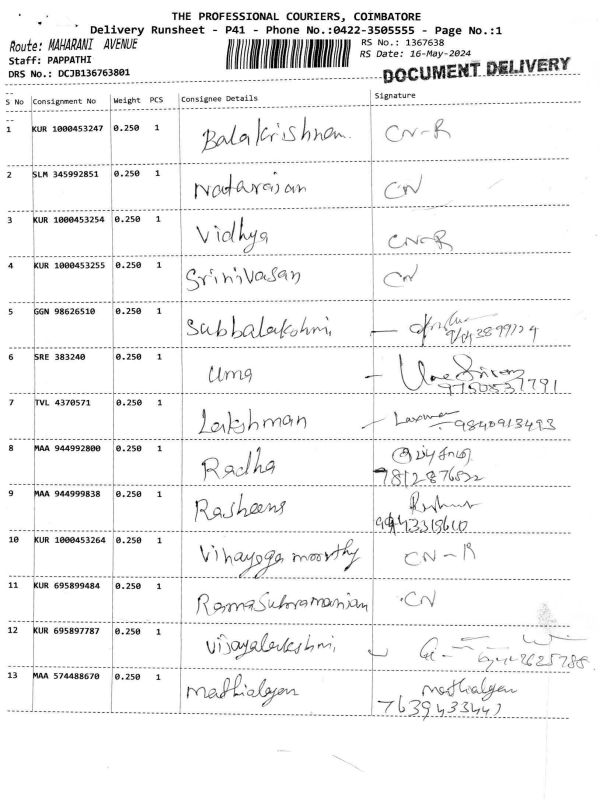 THE PROFESSIONAL COURIERS, COIMBATORE
Delivery Runsheet - P41 - Phone No.:0422-3505555 - Page No.:1
Route: MAHARANI AVENUE RS No.: 1367638
Staff: PAPPATHI RS Date: 16-May-2024
DRS No.: DCJB136763801 DOCUMENT DELIVERY
S No Consignment No Weight PCS Consignee Details Signature
1 KUR 1000453247 0.250 1 Balakrishnan CN-R
2 SLM 345992851 0.250 1 Natarajan CN
3 KUR 1000453254 0.250 1 Vidhya CN-R
4 KUR 1000453255 0.250 1 Srinivasan CN
5 GGN 98626510 0.250 1 Subbalakshmi
6 SRE 383240 0.250 1 Uma
9750537791
7 TVL 4370571 0.250 1 Lakshman - Laxman
9840913493
8 MAA 944992800 0.250 1 Radha
9 MAA 944999838 0.250 1
10 KUR 1000453264 0.250 1 Vinayoga moorthy CN-R
11 KUR 695899484 0.250 1 Rama Subramanian CN
12 KUR 695897787 0.250 1 Vijayalakshmi
13 MAA 574488670 0.250 1 Mathialgen Mathialgen